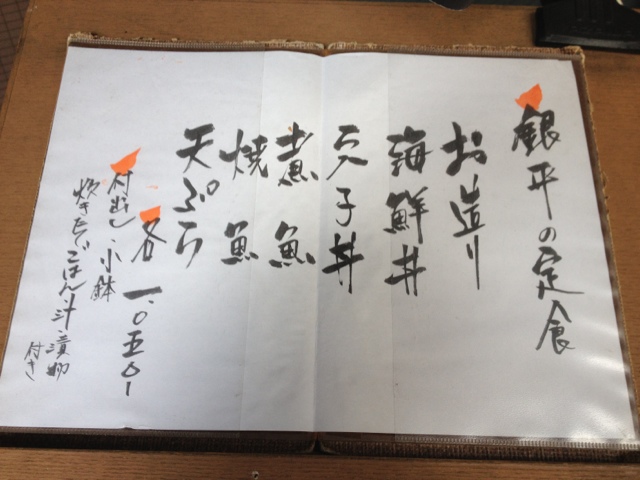 銀平の定食
お造り
海鮮丼
穴子丼
煮魚
焼魚
天ぷら
各 一、〇五〇ー
付出し・小鉢
炊きたてごはん・汁・漬物
付き